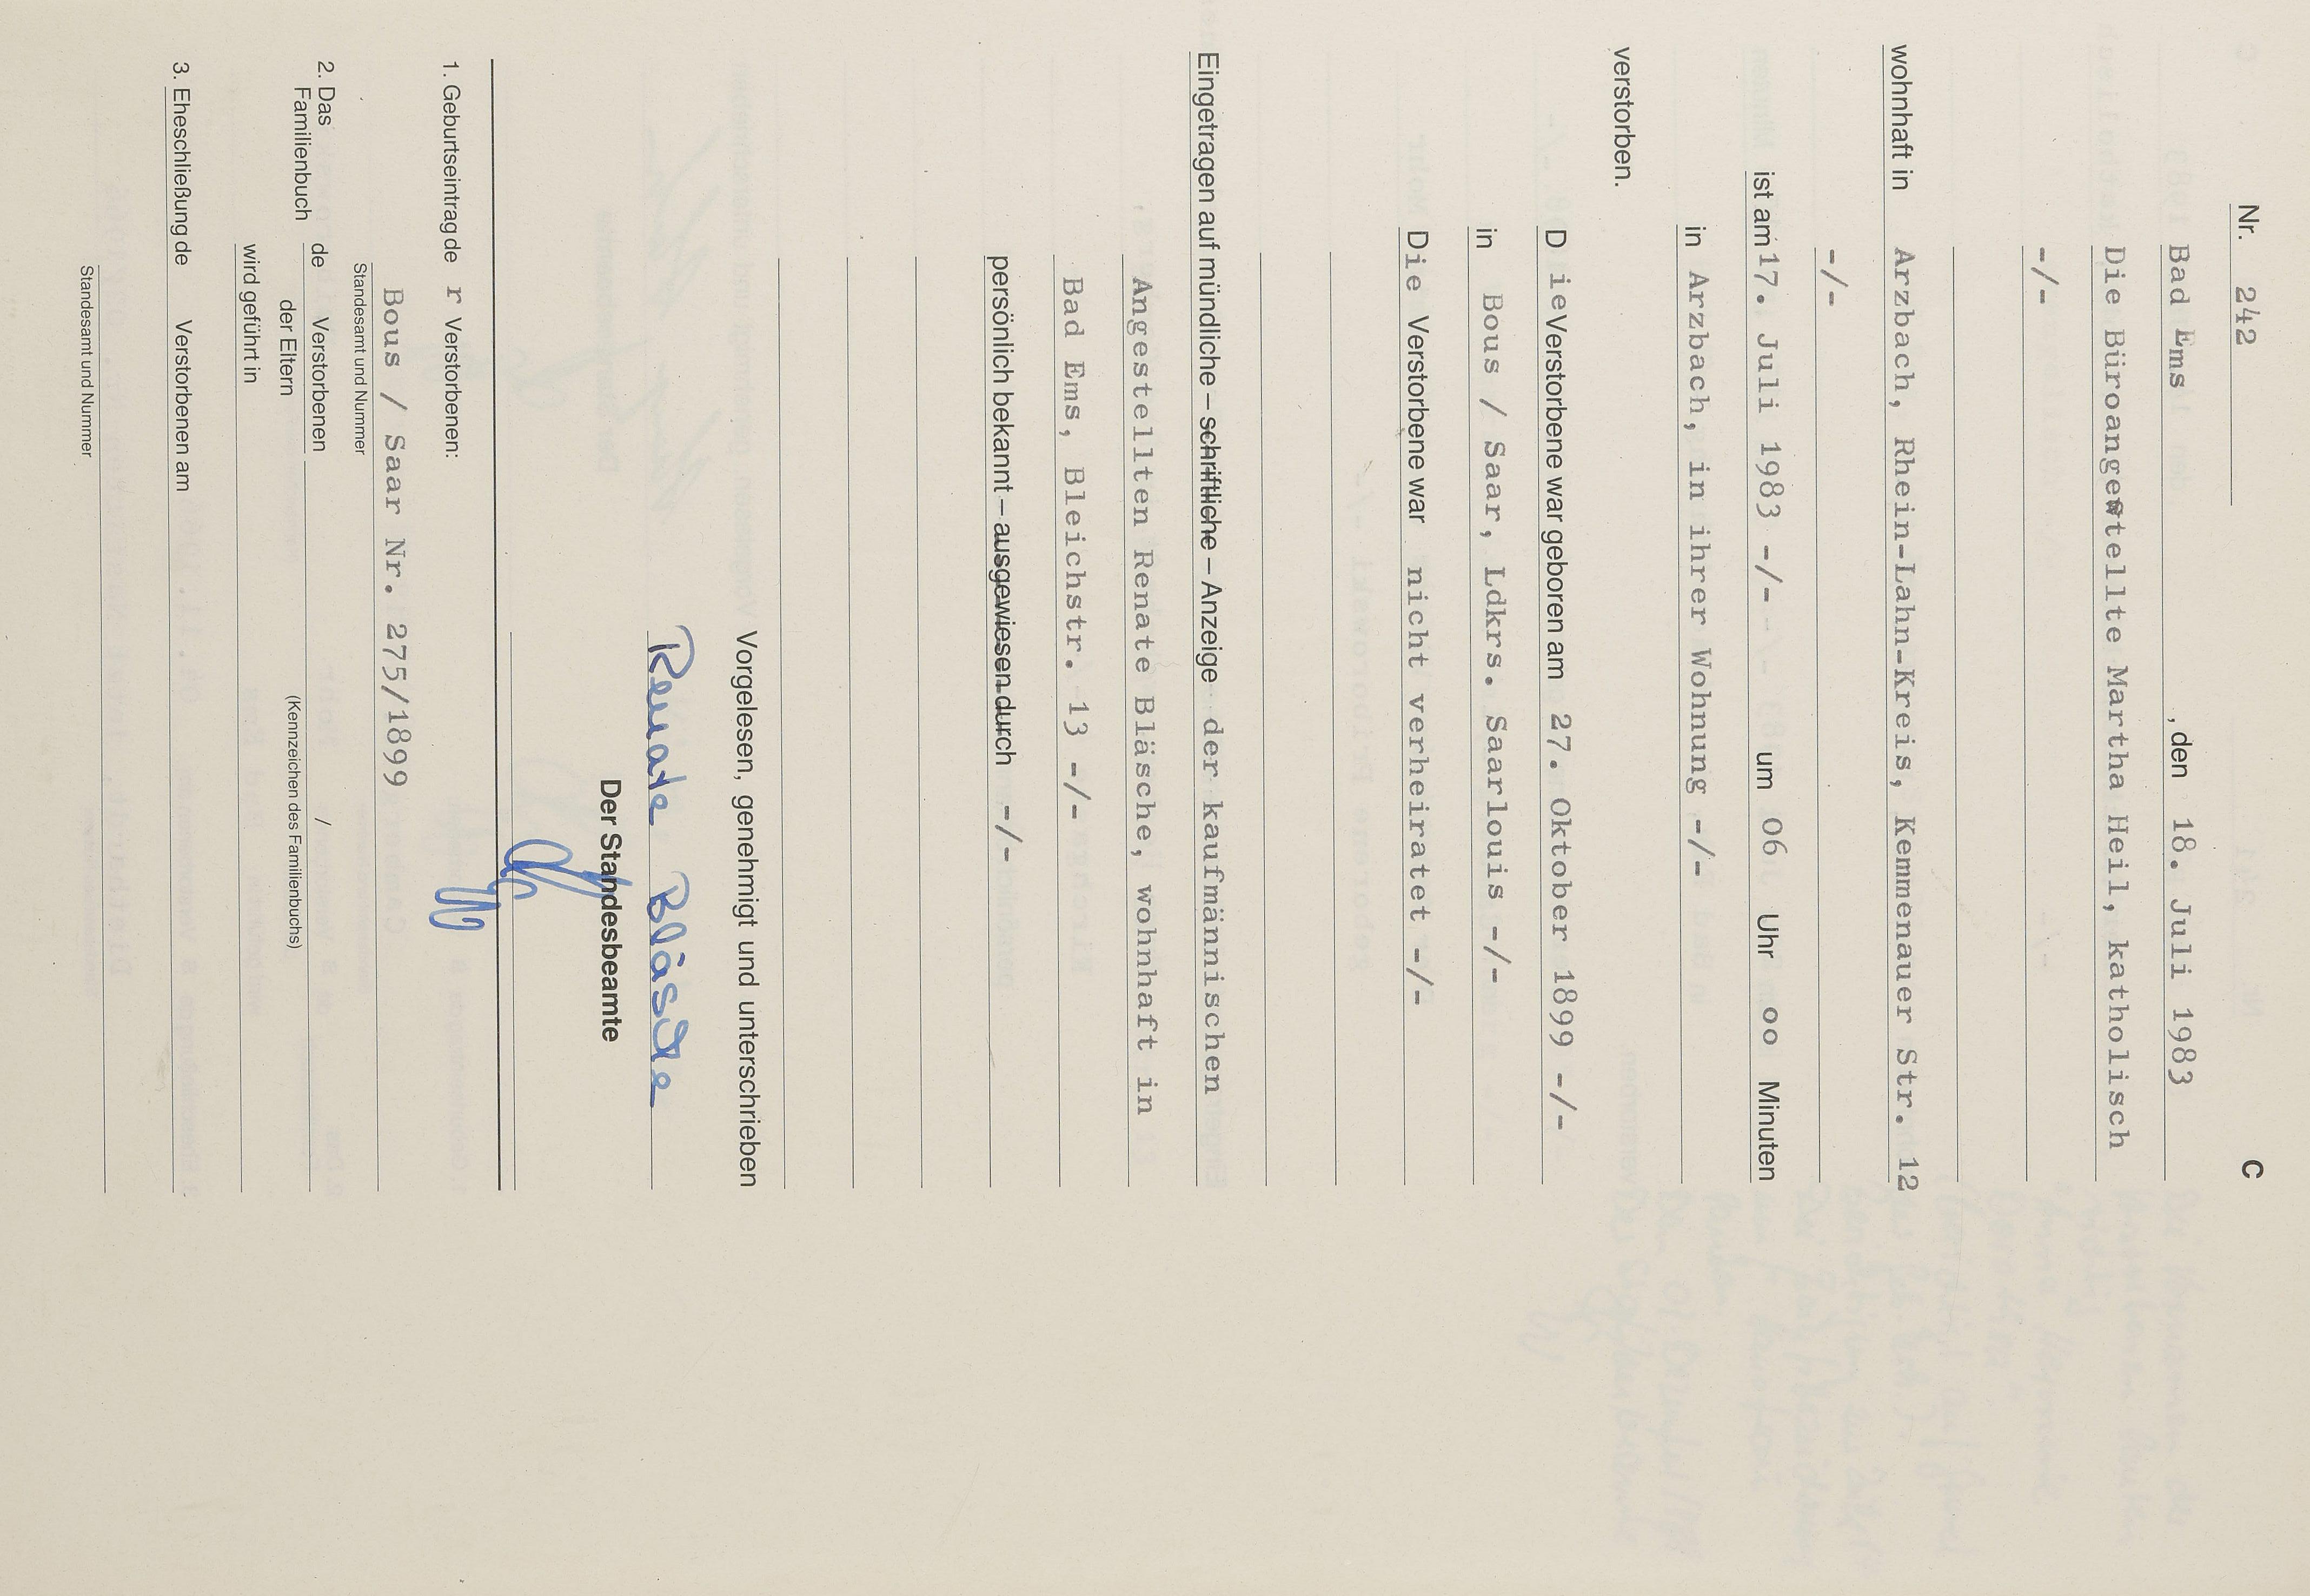 C
Nr. 242
Bad Ems, den 18. Juli 1983
Die Büroangestellte Martha Heil, katholisch
-/-
wohnhaft in Arzbach, Rhein-Lahn-Kreis, Kemmenauer Str. 12
-/-
ist am 17. Juli 1983 -/- um 06 Uhr oo Minuten
in Arzbach, in ihrer Wohnung -/-
verstorben.
D ie Verstorbene war geboren am 27. Oktober 1899 -/-
in Bous / Saar, Ldkrs. Saarlouis -/-
Die Verstorbene war nicht verheiratet -/-
Eingetragen auf mündliche – schriftliche – Anzeige der kaufmännischen
Angestellten Renate Bläsche, wohnhaft in
Bad Ems, Bleichstr. 13 -/-
persönlich bekannt – ausgewiesen durch -/-
Vorgelesen, genehmigt und unterschrieben
Renate Bläsche
Der Standesbeamte
1. Geburtseintrag de r Verstorbenen:
Bous / Saar Nr. 275/1899
Standesamt und Nummer
2. Das Familienbuch de Verstorbenen /
der Eltern (Kennzeichen des Familienbuchs)
wird geführt in
3. Eheschließung de Verstorbenen am
Standesamt und Nummer